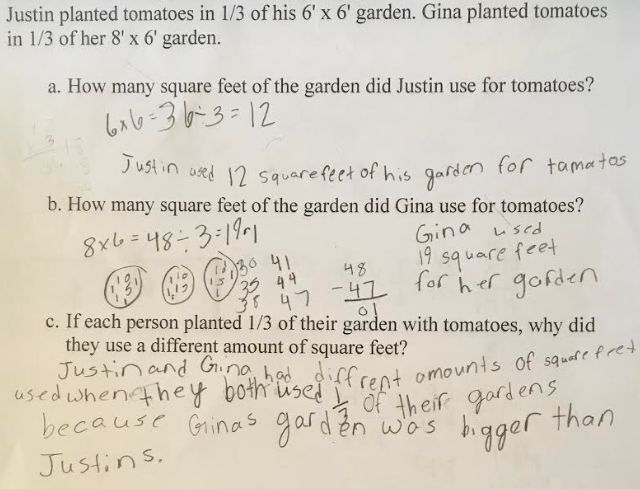 Justin planted tomatoes in 1/3 of his 6' x 6' garden. Gina planted tomatoes
in 1/3 of her 8' x 6' garden.
a. How many square feet of the garden did Justin use for tomatoes?
6x6=36÷3=12
Justin used 12 squarefeet of his garden for tamatos
b. How many square feet of the garden did Gina use for tomatoes?
8x6=48÷3=19r1
Gina used
19 square feet
for her garden
30 41
35 44
38 47
48
-47
01
c. If each person planted 1/3 of their garden with tomatoes, why did
they use a different amount of square feet?
Justin and Gina had diffrent amounts of square freet
used when they both used 1/3 of their gardens
because Ginas garden was bigger than
Justins.